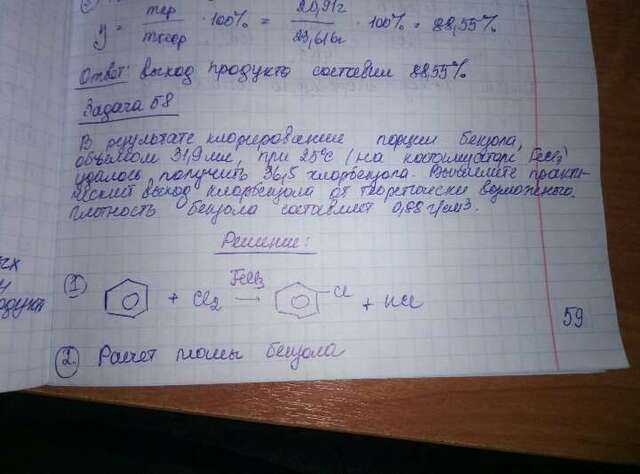 y = mпр / mтеор · 100% = 20,91г / 23,616г · 100% = 88,55%
Ответ: выход продукта составил 88,55%
Задача 58
В результате хлорирования порции бензола,
объёмом 31,9 мл, при 25°C (на катализаторе FeCl3)
удалось получить 36,5 хлорбензола. Вычислите практи-
ческий выход хлорбензола от теоретически возможного.
Плотность бензола составляет 0,88 г/см3.
Решение:
1 + Cl2 FeCl3 → Cl + HCl
59
2. Расчет массы бензола